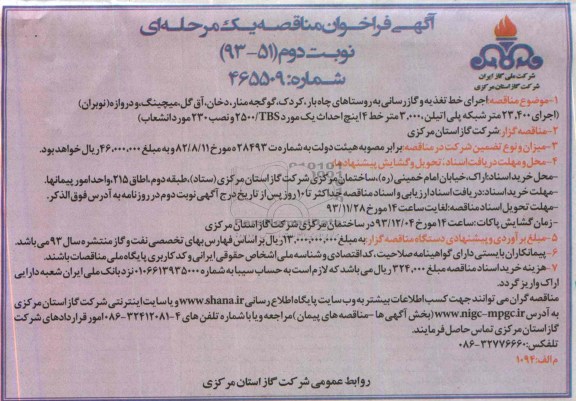 آگهی فراخوان مناقصه یک مرحله‌ای
نوبت دوم (۵۱-۹۳)
شماره: ۴۶۵۵۰۹
شرکت ملی گاز ایران
شرکت گاز استان مرکزی
۱-موضوع مناقصه: اجرای خط تغذیه و گازرسانی به روستاهای چاه‌بار، کردک، گوگجه‌منار، دخان، آق گل، میچینگ، و دروازه (نوبران)
(اجرای ۲۳،۴۰۰ متر شبکه پلی اتیلن، ۳،۰۰۰ متر خط ۴ اینچ احداث یک مورد ۲۵۰۰/TBS و نصب ۲۳۰ مورد انشعاب)
۲-مناقصه گزار: شرکت گاز استان مرکزی
۳-میزان و نوع تضمین شرکت در مناقصه: برابر مصوبه هیئت دولت به شماره ت ۲۸۴۹۳ مورخ ۸۲/۸/۱۱ و به مبلغ ۴۶،۰۰۰،۰۰۰ ریال خواهد بود.
۴-محل و مهلت دریافت اسناد، تحویل و گشایش پیشنهادها:
-محل خرید اسناد: اراک، خیابان امام خمینی (ره)، ساختمان مرکزی شرکت گاز استان مرکزی (ستاد)، طبقه دوم، اطاق ۲۱۵، واحد امور پیمانها.
-مهلت خرید اسناد: دریافت اسناد ارزیابی و اسناد مناقصه حداکثر تا ۱۰ روز پس از تاریخ درج آگهی نوبت دوم در روزنامه به آدرس فوق الذکر.
-مهلت تحویل اسناد مناقصه: لغایت ساعت ۱۴ مورخ ۹۳/۱۱/۲۸
-زمان گشایش پاکات: ساعت ۱۴ مورخ ۹۳/۱۲/۰۴ در ساختمان مرکزی شرکت گاز استان مرکزی
۵-مبلغ برآوردی و پیشنهادی دستگاه مناقصه گزار: به مبلغ ۱۳،۰۰۰،۰۰۰،۰۰۰ ریال بر اساس فهارس بهای تخصصی نفت و گاز منتشره سال ۹۳ می‌باشد.
۶-پیمانکاران بایستی دارای گواهینامه صلاحیت، کد اقتصادی و شناسه ملی اشخاص حقوقی ایرانی و کد کاربری پایگاه ملی مناقصات باشند.
۷-هزینه خرید اسناد مناقصه مبلغ ۳۲۴،۰۰۰ ریال می باشد که لازم است به حساب سیبا به شماره ۰۱۰۶۶۱۳۹۳۵۰۰۰ نزد بانک ملی ایران شعبه دارایی
اراک واریز گردد.
مناقصه گران می توانند جهت کسب اطلاعات بیشتر به وب سایت پایگاه اطلاع رسانی www.shana.ir و یا سایت اینترنتی شرکت گاز استان مرکزی
به آدرس www.nigc-mpgc.ir (بخش آگهی ها -مناقصه های پیمان) مراجعه و یا با شماره تلفن های ۴-۳۲۴۱۲۰۸۱-۰۸۶ امور قراردادهای شرکت
گاز استان مرکزی تماس حاصل فرمایند.
تلفکس: ۳۲۷۷۶۶۶۰-۰۸۶
م الف: ۱۰۹۴
روابط عمومی شرکت گاز استان مرکزی